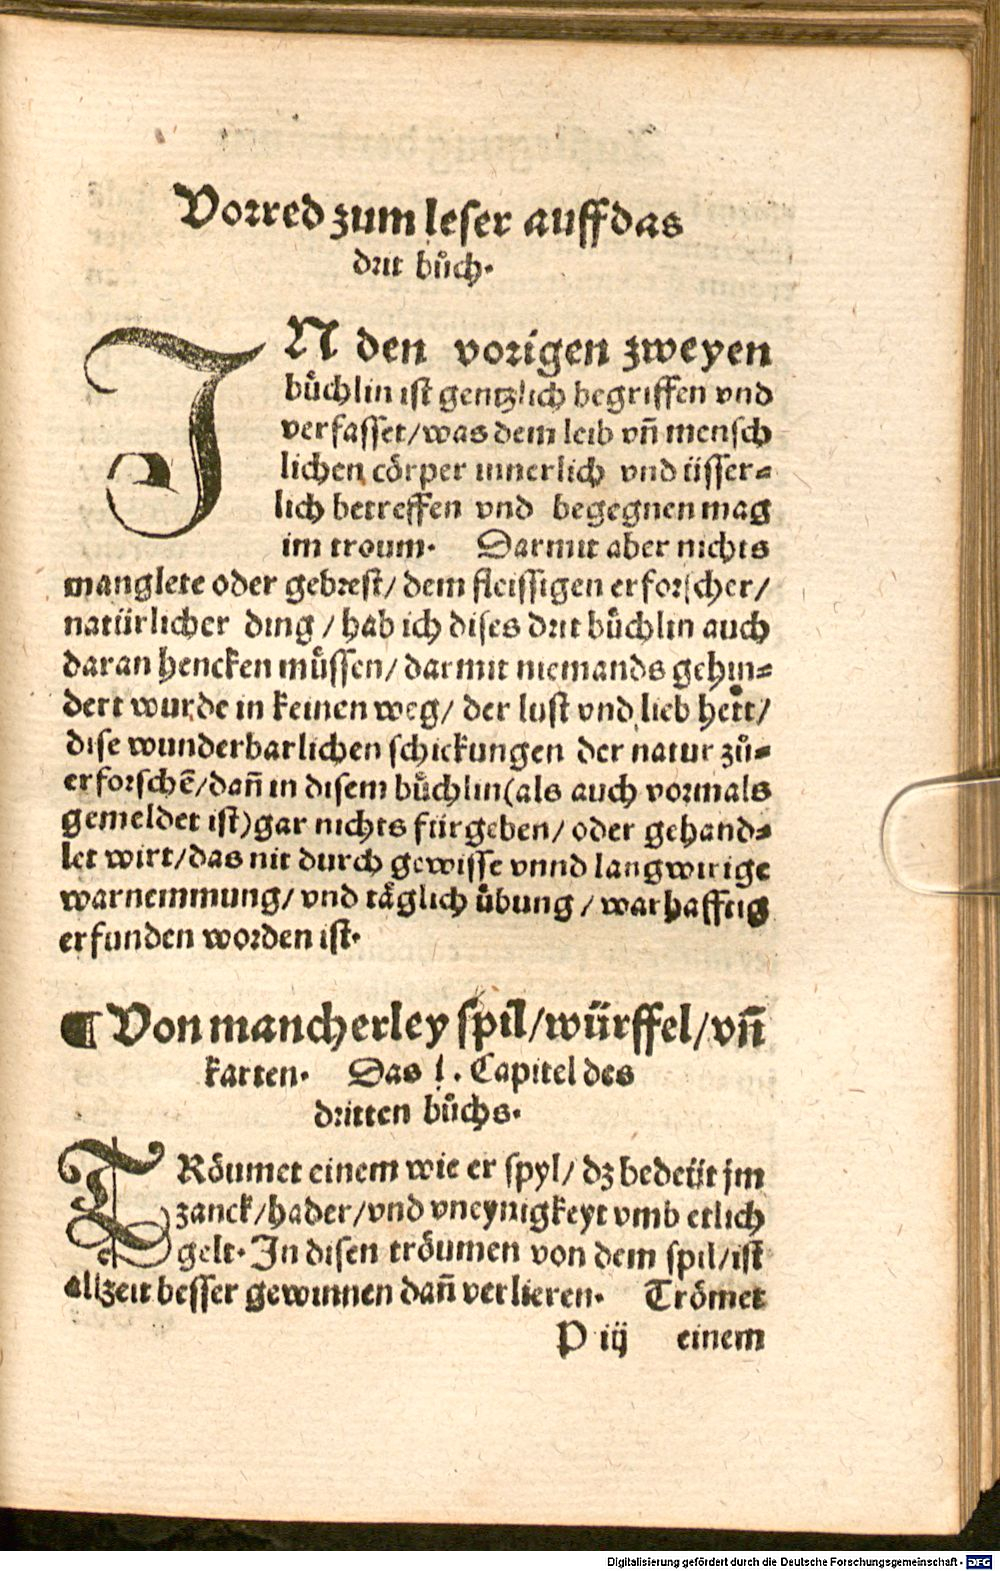 Vorred zum leser auff das
drit bůch.
IN den vorigen zweyen
bůchlin ist gentzlich begriffen vnd
verfasset/was dem leib vn̄ mensch
lichen cörper innerlich vnd üsser⸗
lich betreffen vnd begegnen mag
im troum. Darmit aber nichts
manglete oder gebrest/ dem fleissigen erforscher/
natürlicher ding / hab ich dises drit bůchlin auch
daran hencken müssen/ darmit niemands gehin⸗
dert wurde in keinen weg/ der lust vnd lieb hett/
dise wunderbarlichen schickungen der natur zů⸗
erforschē/dan̄ in disem bůchlin(als auch vormals
gemeldet ist)gar nichts fürgeben/ oder gehand⸗
let wirt/das nit durch gewisse vnnd langwirige
warnemmung/ vnd täglich übung / warhafftig
erfunden worden ist.
¶ Von mancherley spil/würffel/vn̄
karten. Das 1. Capitel des
dritten bůchs.
TRöumet einem wie er spyl/ dz bedeüt jm
zanck/hader/vnd vneynigkeyt vmb etlich
gelt. In disen tröumen von dem spil/ist
allzeit besser gewinnen dan̄ verlieren. Trömet
P iij einem
Digitalisierung gefördert durch die Deutsche Forschungsgemeinschaft - DFG